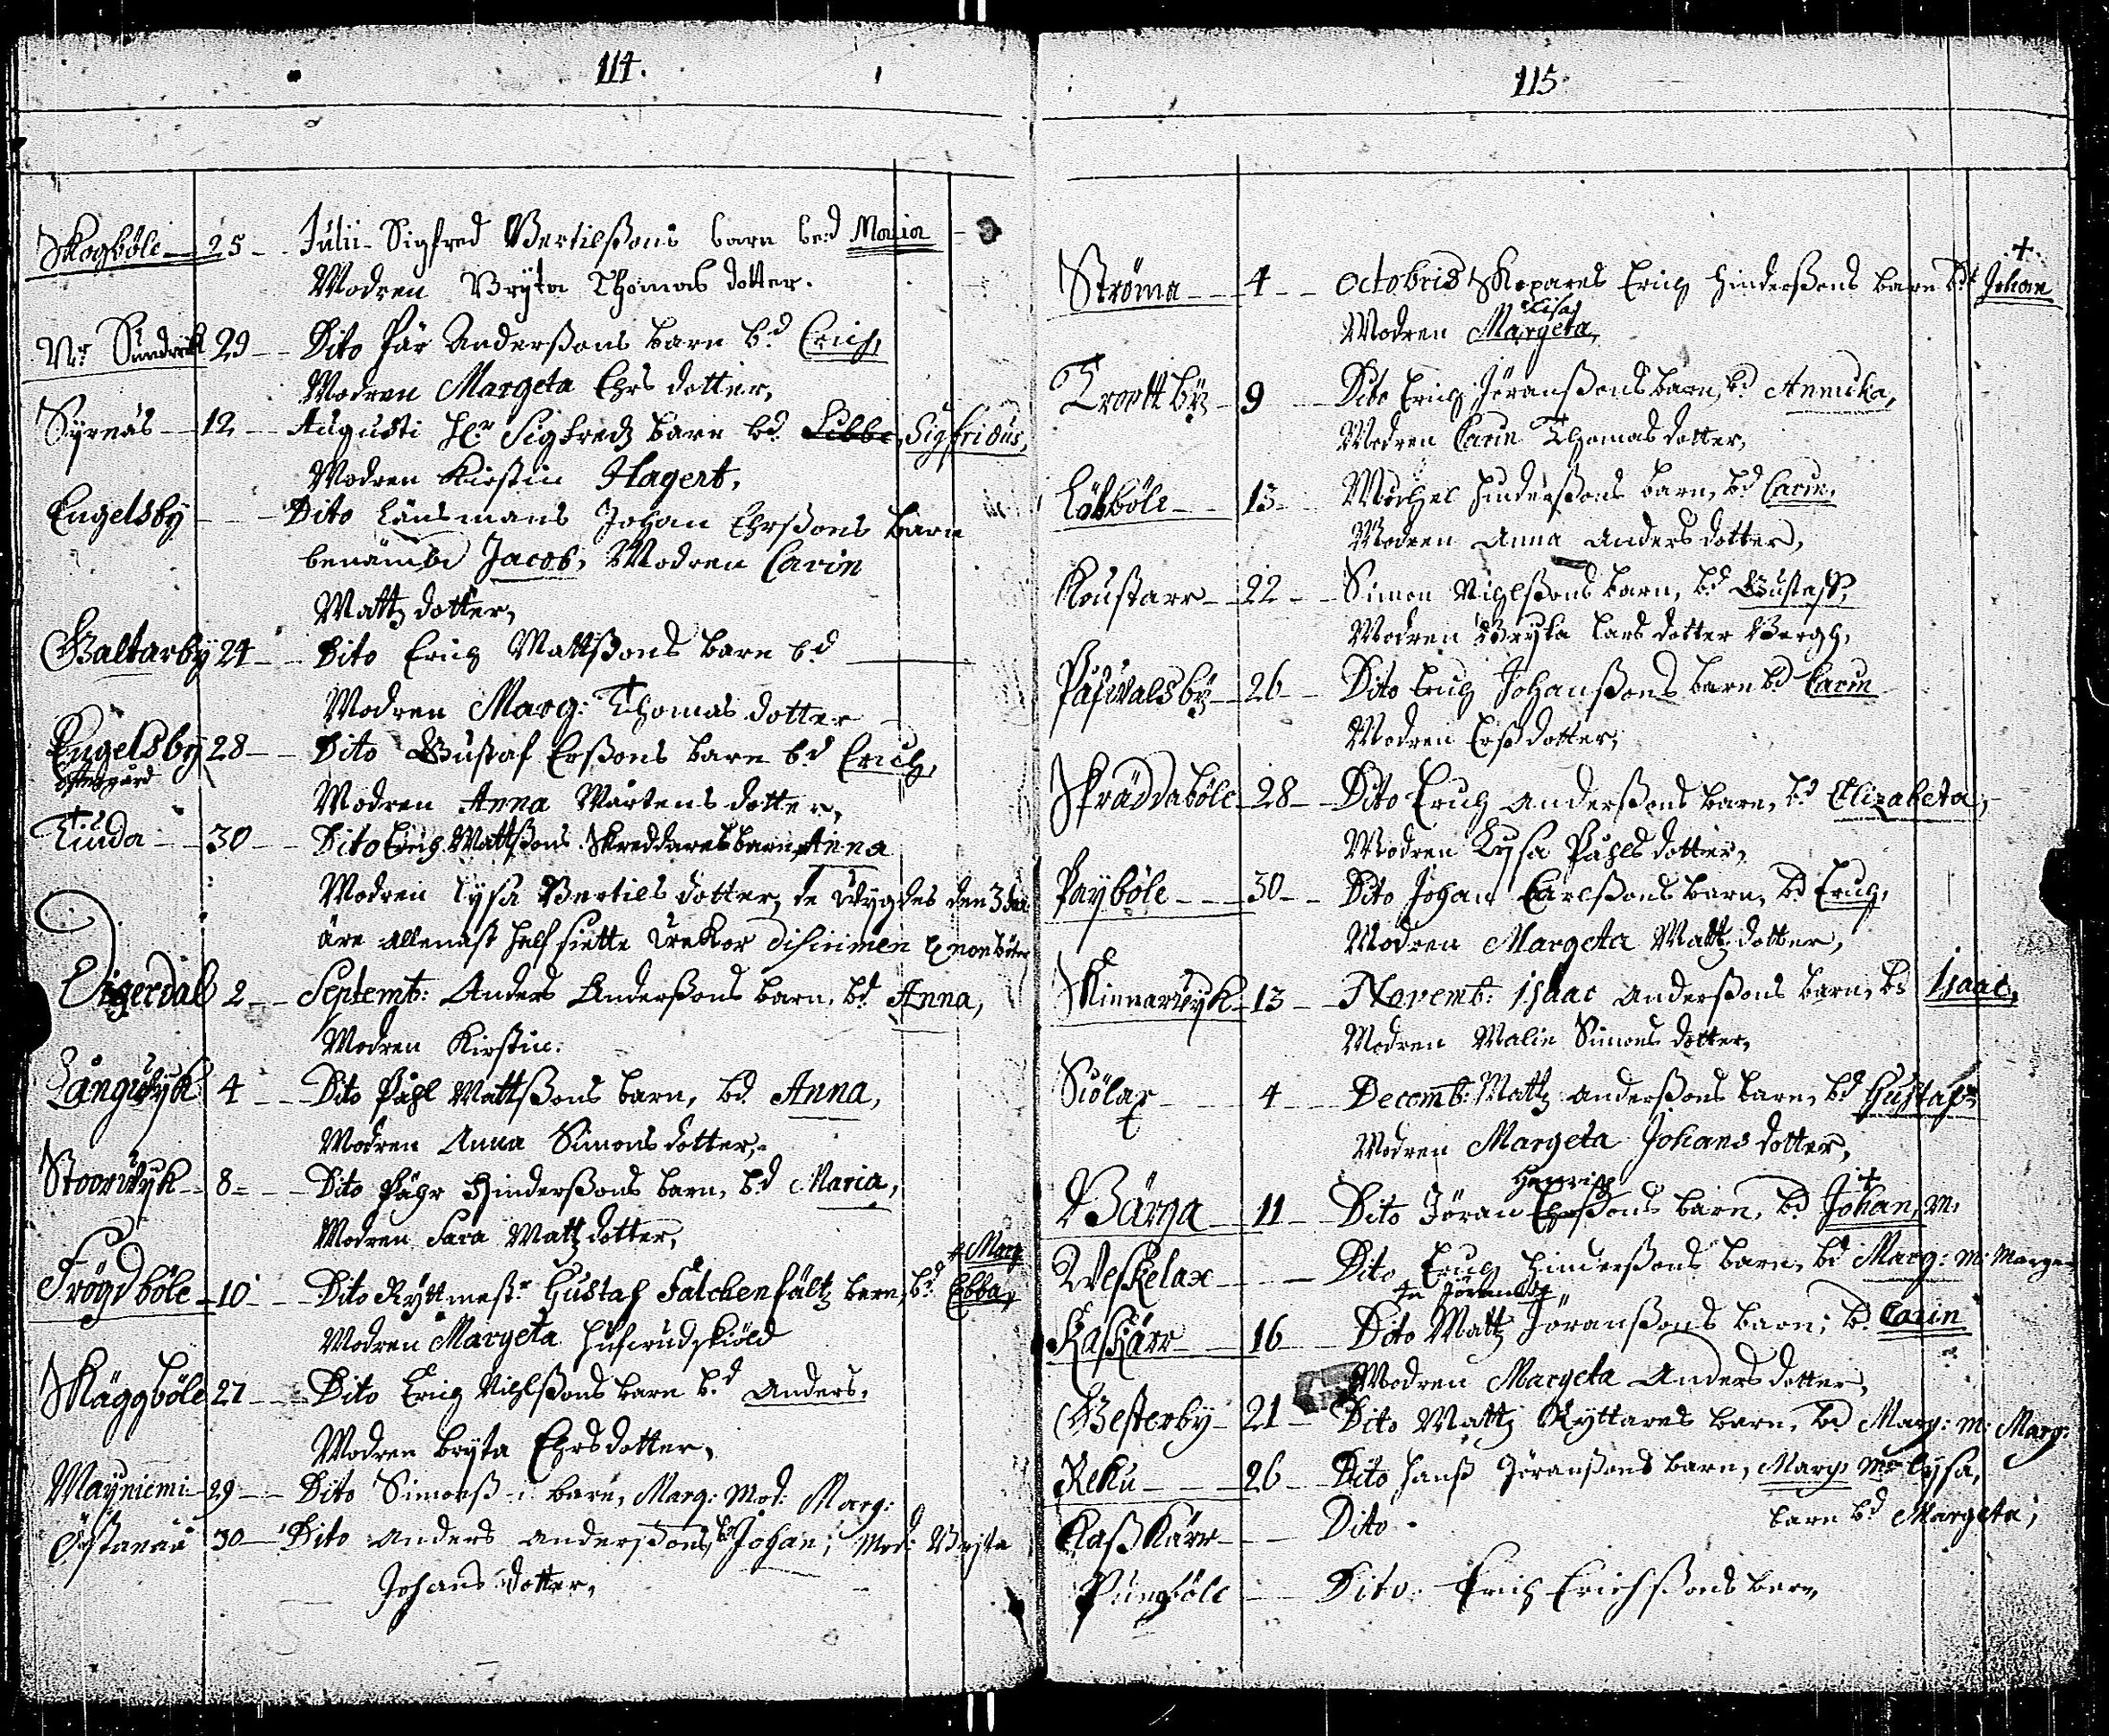 114.
Skogböle 25 Julii Sigfred Bertilßons barn be:d Maria
Modren Bryta Thomas dotter.
Nr Sundwik 29 Dito Pär Anderßons barn b:d Erich,
Modren Margeta Ehrs dotter,
Syrnäs 12 Augusti H:r Sigfredz barn bd. Sigfridus,
Modren Kirstin Hagert,
Engelsby Dito Länsmans Johan Ehrßons barn
benämbd Jacob, Modren Carin
Mattz dotter,
Galtarby 24 Dito Erich Mattßons barn b:d
Modren Marg: Thomas dotter
Engelsby 28 Dito Gustaf Erßons barn b:d Erich,
Modren Anna Mårtens dotter,
Tiuda 30 Dito Erich Mattßons Skreddares barn Anna
Modren Lysa Bertils dotter, de wygdes den 3
äre allenast half siette weckor
Digerdal 2 Septemb: Anders Anderßons barn, bd. Anna,
Modren Kirstin.
Långwyk 4 Dito Påhl Mattßons barn, bd Anna,
Modren Anna Simons dotter,
Stoorwyk 8 Dito Påhr Hinderßons barn, b:d Maria,
Modren Sara Mattz dotter,
Marg
Frögdböle 10 Dito Ryttmest:r Gustaf Falchenfältz barn, b:d Ebba,
Modren Margeta
Mäggböle 27 Dito Erich Nihlßons barn b:d Anders,
Modren Bryta Ehrsdotter,
Mayniemi 29 Dito Simonß barn, Marg: Mod: Marg:
Östanåå 30 Dito Anders Anderßons, Johan; Mod: Bryta
Johans dotter,
115.
Ströma 4 Octobris Skepares Erich Hinderßons barn bd Johan
Lisa
Modren Margeta,
Trottby 9 Dito Erich Jöranßons barn, bd Annicka,
Modren Carin Thomas dotter,
Löfböle 13 Michel Hinderßons barn, bd Carin,
Modren Anna Anders dotter,
22 Simon Nihlßons barn, bd Gustaff,
Modren Bryta Lars dotter Bergh,
Påfwalsby 26 Dito Erich Johanßons barn bd Carin
Modren Erßdotter,
Skräddaböle 28 Dito Erich Anderßons barn, bd Elizabeta,
Modren Lysa Påhls dotter,
Payböle 30 Dito Johan Carlßons barn, bd Erich,
Modren Margeta Mattz dotter,
Skinnarwyk 13 Novemb: Isaac Anderßons barn, bd Isaac,
Modren Malin Simons dotter,
Siölax 4 Decemb: Mattz Anderßons barn, bd Gustaf
Modren Margeta Johans dotter,
Henrich
Bärga 11 Dito Jöran Ehrßons barn, bd Johan, M.
Weskelax Dito Erich Hinderßons barn, bd Marg: M: Marge
Kaskärr 16 Dito Mattz Jöranßons barn; b. Carin
Modren Margeta Anders dotter,
Westerby 21 Dito Mattz Ryttares barn, bd Marg: M: Marg:
Reku 26 Dito Hanß Jöranßons barn, Marg: M: Lysa,
Kaßkärr Dito barn bd Margeta;
Pungböle Dito Erich Erichßons barn,